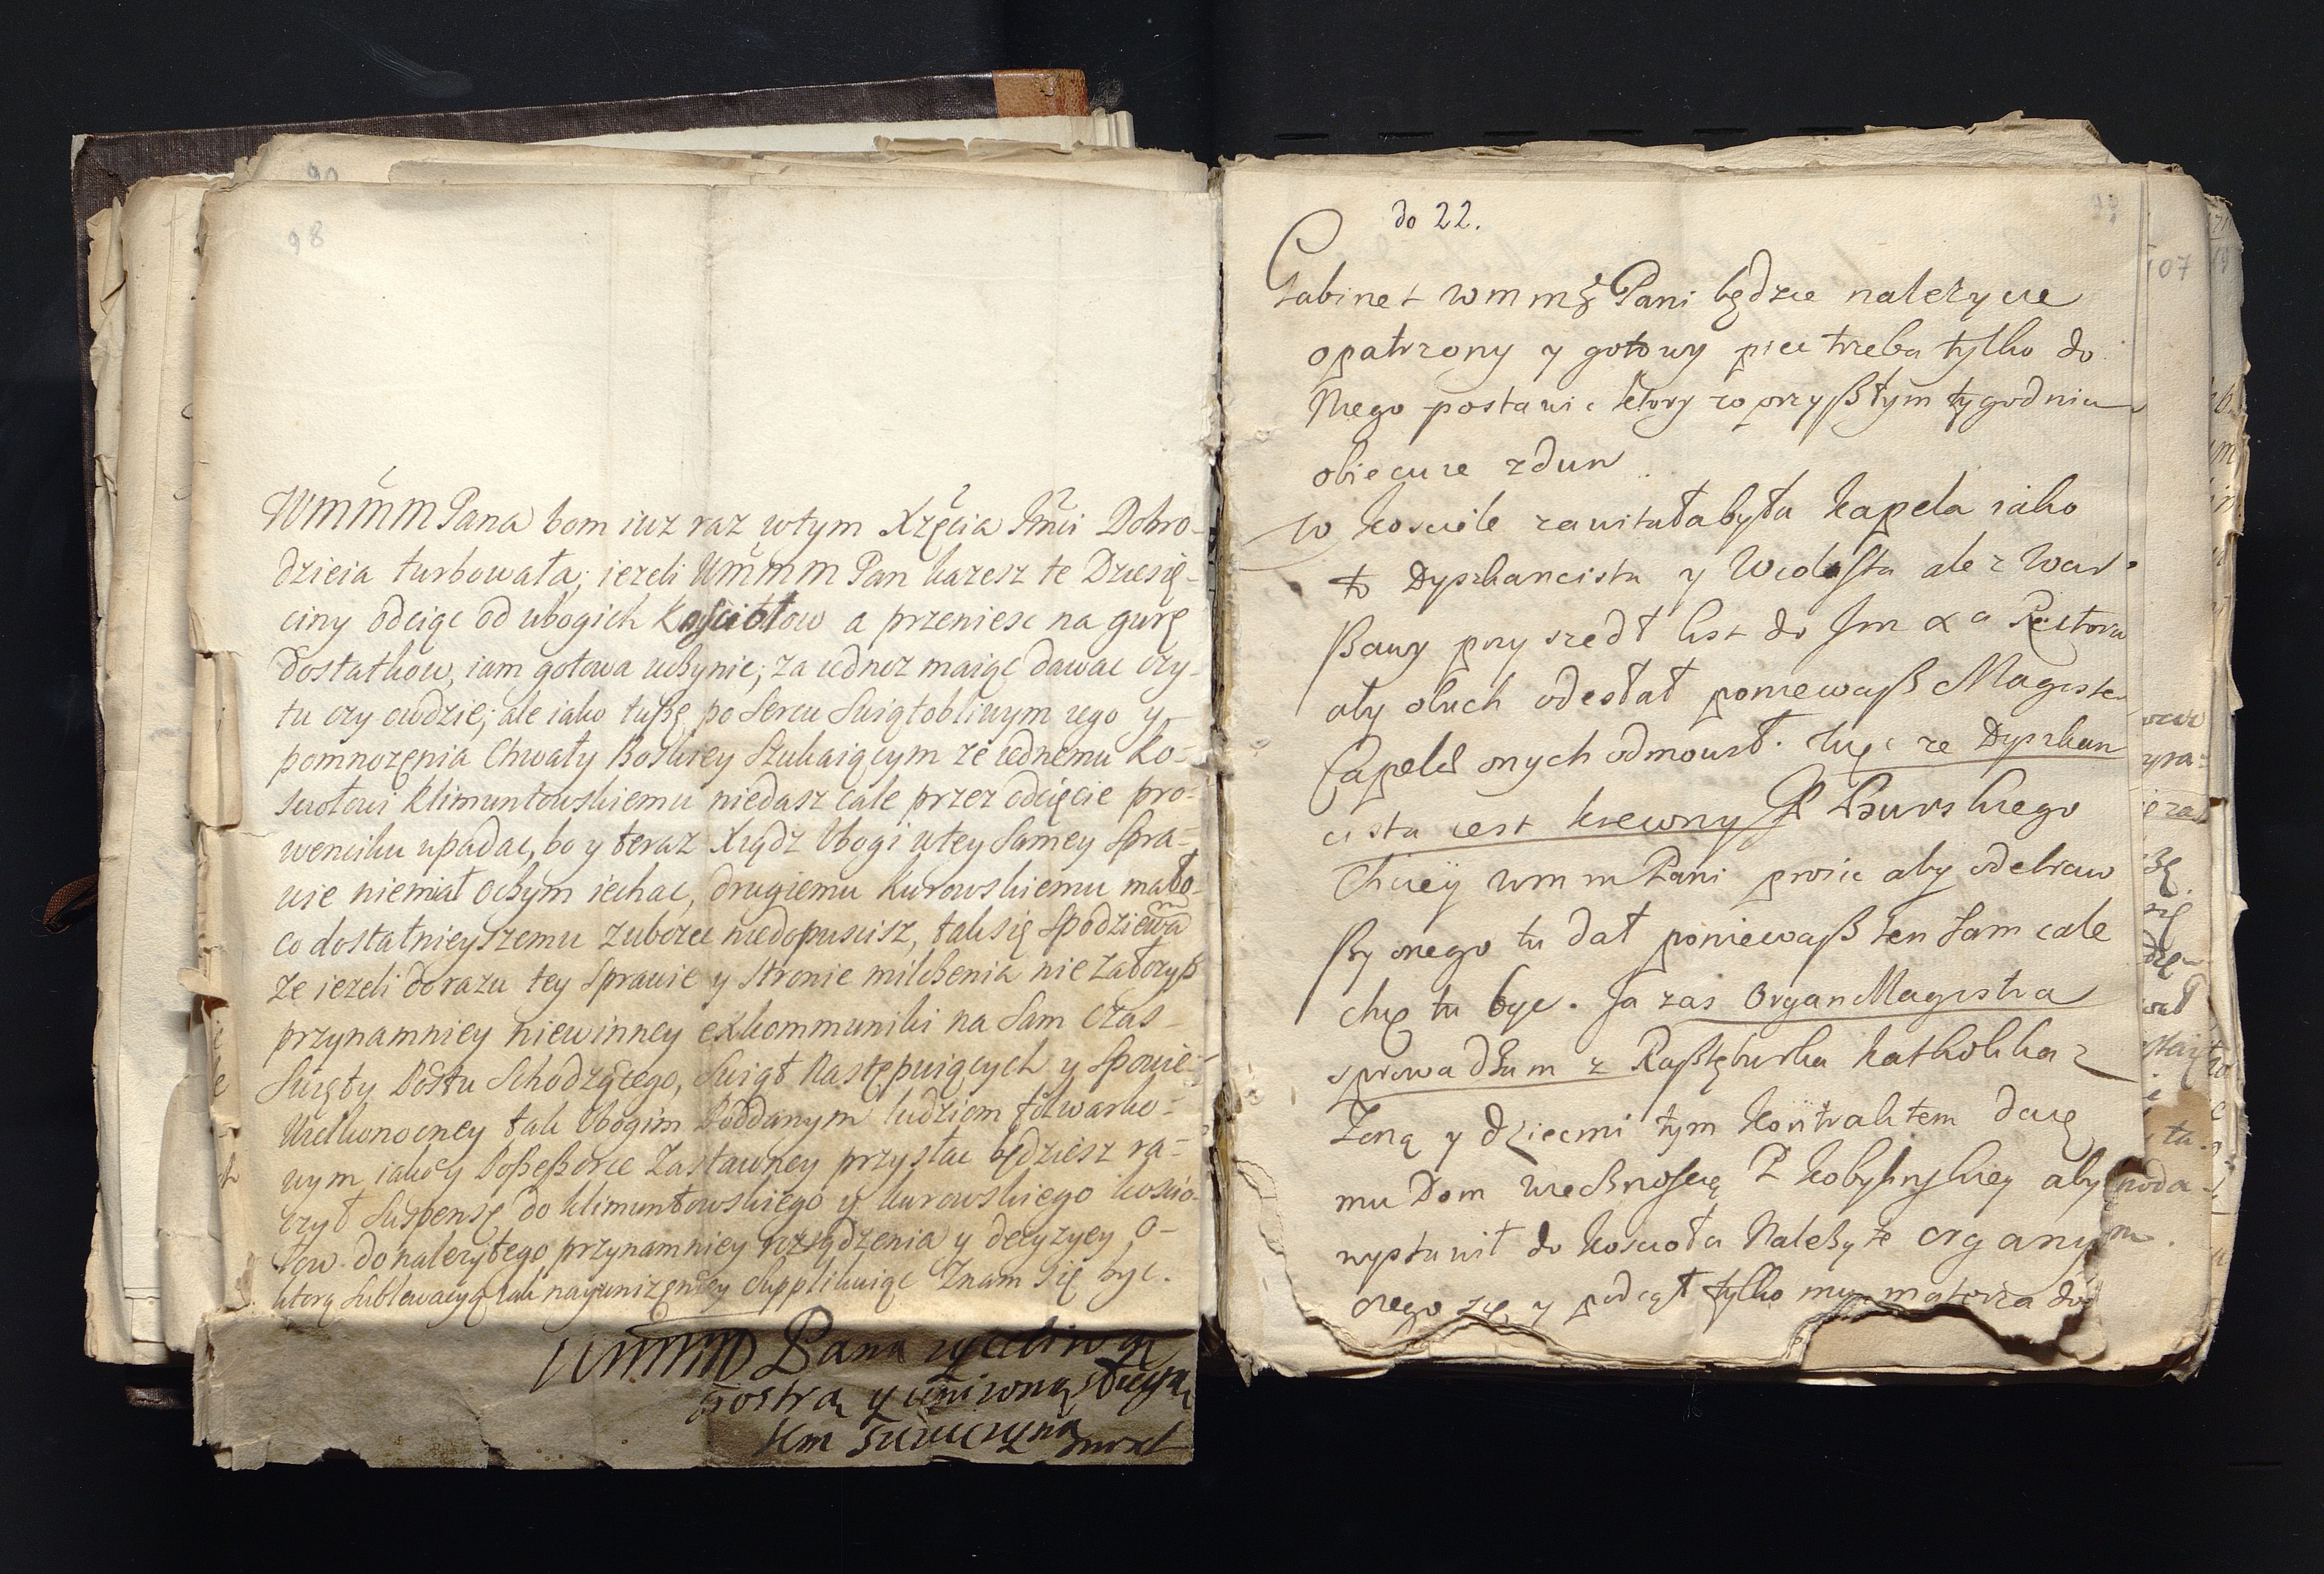 98
WMMM Pana bom iuz raz wtym Xzęcia Jmci Dobro-
dzieia turbowała; iezeli WMMM Pan kazesz te Dziesię-
ciny odciąc od ubogich Kosciołow a przeniesc na gurę
dostatkow, iam gotowa uczynic; za iedno maiąc dawac czy
tu czy owdzie; ale iako tuszę po Sercu Swiątobliwym iego y
pomnozęnia Chwały Boskiey Szukaiącym ze iednemu Ko-
sciołowi Klimuntowskiemu niedasz cale przez odcięcie pro-
wenciku upadac, bo y teraz Xiądz Ubogi wtey Samey Spra-
wie niemiał oczym iechac, drugiemu Kurowskiemu mało-
co dostatnieyszemu zubozec niedopuscisz, tak się Spodziewam
ze iezeli dorazu tey Sprawie y Stronie milczenia nie załozysz
przynamniey niewinney exkommuniki na Sam czas
Swięty Postu Schodzącego, Swiąt Następuiących y Spowie-
Wielkonocney tak Ubogim Poddanym ludziom folwarko-
wym iako y Possessorce Zastawney przysłac będziesz ra-
czył Suspensę do Klimuntowskiego y Kurowskiego koscio-
łow do nalezytego przynamniey rozsądzenia y decyzyey o
ktorą Sublewacyą iak nayunizęniey Supplikuiąc Znam się byc.
WMMM Pana zycliwą
siostrą y unizoną sługą
do 22.
99
107
Gabinet wmm Pani będzie nalezycie
opatrzony y gotowy piec trzeba tylko do
Niego postawic ktory w przyszłym tygodniu
obiecuie zdun
w kosciele zawitałabyła kapela iako
to Dyszkancista y Wiolista ale z War-
szawy przyszedł list do Jm Xa Rectora
aby obuch odesłał poniewasz Magister
Capelae onych odmowił. Więc ze Dyszkan
cista iest krewny P Burskiego
Chciey wmm Pani prosic aby odebraw
szy onego tu dał poniewasz ten Sam cale
chce tu byc. Ja zas OrganMagistra
sprowadziłam z Rasztęburka Katholika z
Zoną y dziecmi tym kontraktem daię
mu Dom wiecznoscią P Kobylinskiey aby
wystawił do koscioła Nalezyte organy
czego się y podiął tylko mu materia do